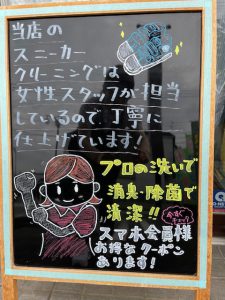 当店の
スニーカー
クリーニングは
女性スタッフが担当
しているので丁寧に
仕上げています!
プロの洗いで
消臭・除菌で
清潔!!
今すぐ
スマホ会員様
お得なクーポン
あります!